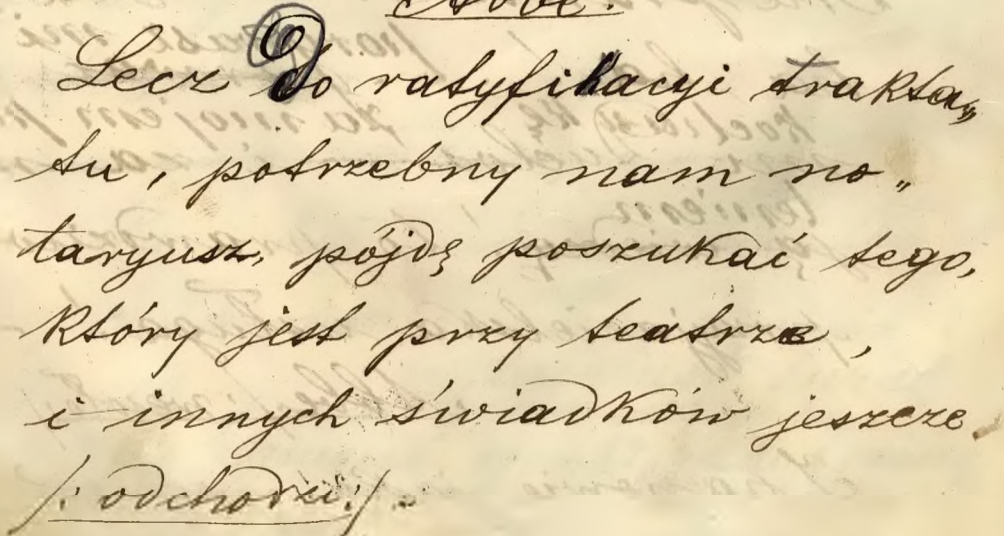 Lecz do ratyfikacyi trakta„
tu, potrzebny nam no„
taryusz, pójdę poszukać tego,
który jest przy teatrze,
i innych świadków jeszcze
/: odchodzi :/.